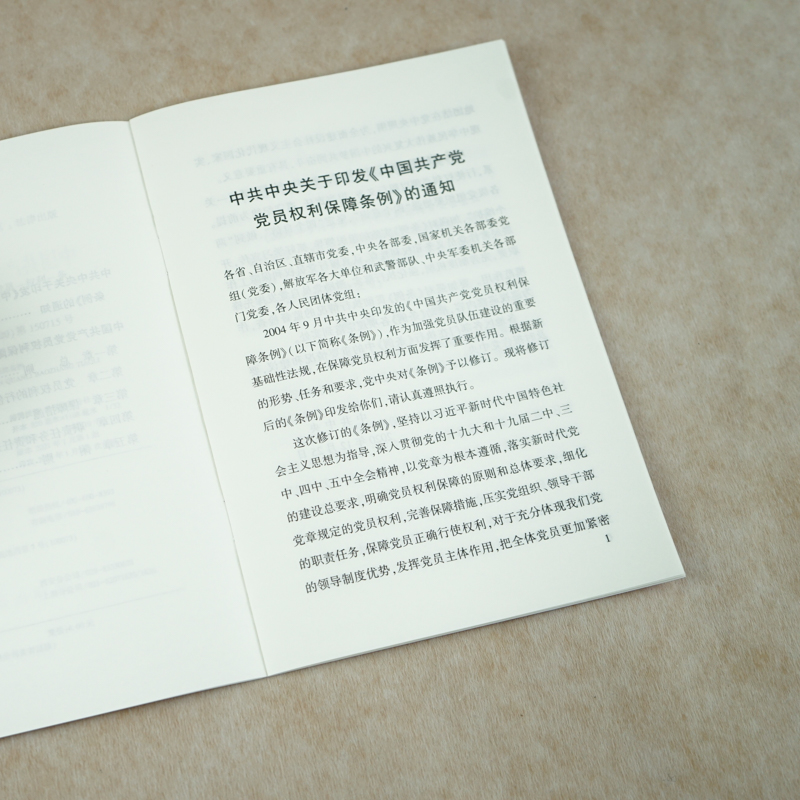 中共中央关于印发《中国共产党
党员权利保障条例》的通知
各省、自治区、直辖市党委，中央各部委，国家机关各部委党
组（党委），解放军各大单位和武警部队、中央军委机关各部
门党委，各人民团体党组：
2004年9月中共中央印发的《中国共产党党员权利保
障条例》（以下简称《条例》），作为加强党员队伍建设的重要
基础性法规，在保障党员权利方面发挥了重要作用。根据新
的形势、任务和要求，党中央对《条例》予以修订。现将修订
后的《条例》印发给你们，请认真遵照执行。
这次修订的《条例》，坚持以习近平新时代中国特色社
会主义思想为指导，深入贯彻党的十九大和十九届二中、三
中、四中、五中全会精神，以党章为根本遵循，落实新时代党
的建设总要求，明确党员权利保障的原则和总体要求，细化
党章规定的党员权利，完善保障措施，压实党组织、领导干部
的职责任务，保障党员正确行使权利，对于充分体现我们党
的领导制度优势，发挥党员主体作用，把全体党员更加紧密
1